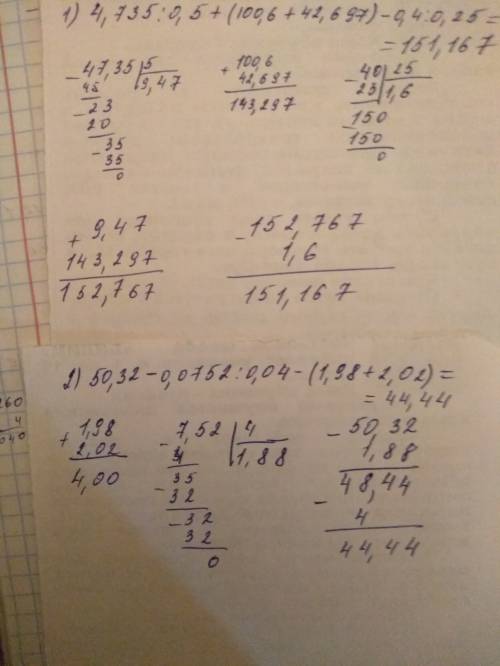 1) 4,735:0,5+(100,6+42,697)-0,4:0,25=
=151,167
-47,35|5
45 9,47
-23
20
-35
35
0
+100,6
42,697
143,297
-40|25
25 1,6
-150
150
0
+9,47
143,297
152,767
-152,767
1,6
151,167
2) 50,32-0,0752:0,04-(1,98+2,02)=
=44,44
+1,98
2,02
4,00
-7,52|4
4 1,88
35
-32
-32
32
0
-50,32
1,88
48,44
-4
44,44
260
4
040